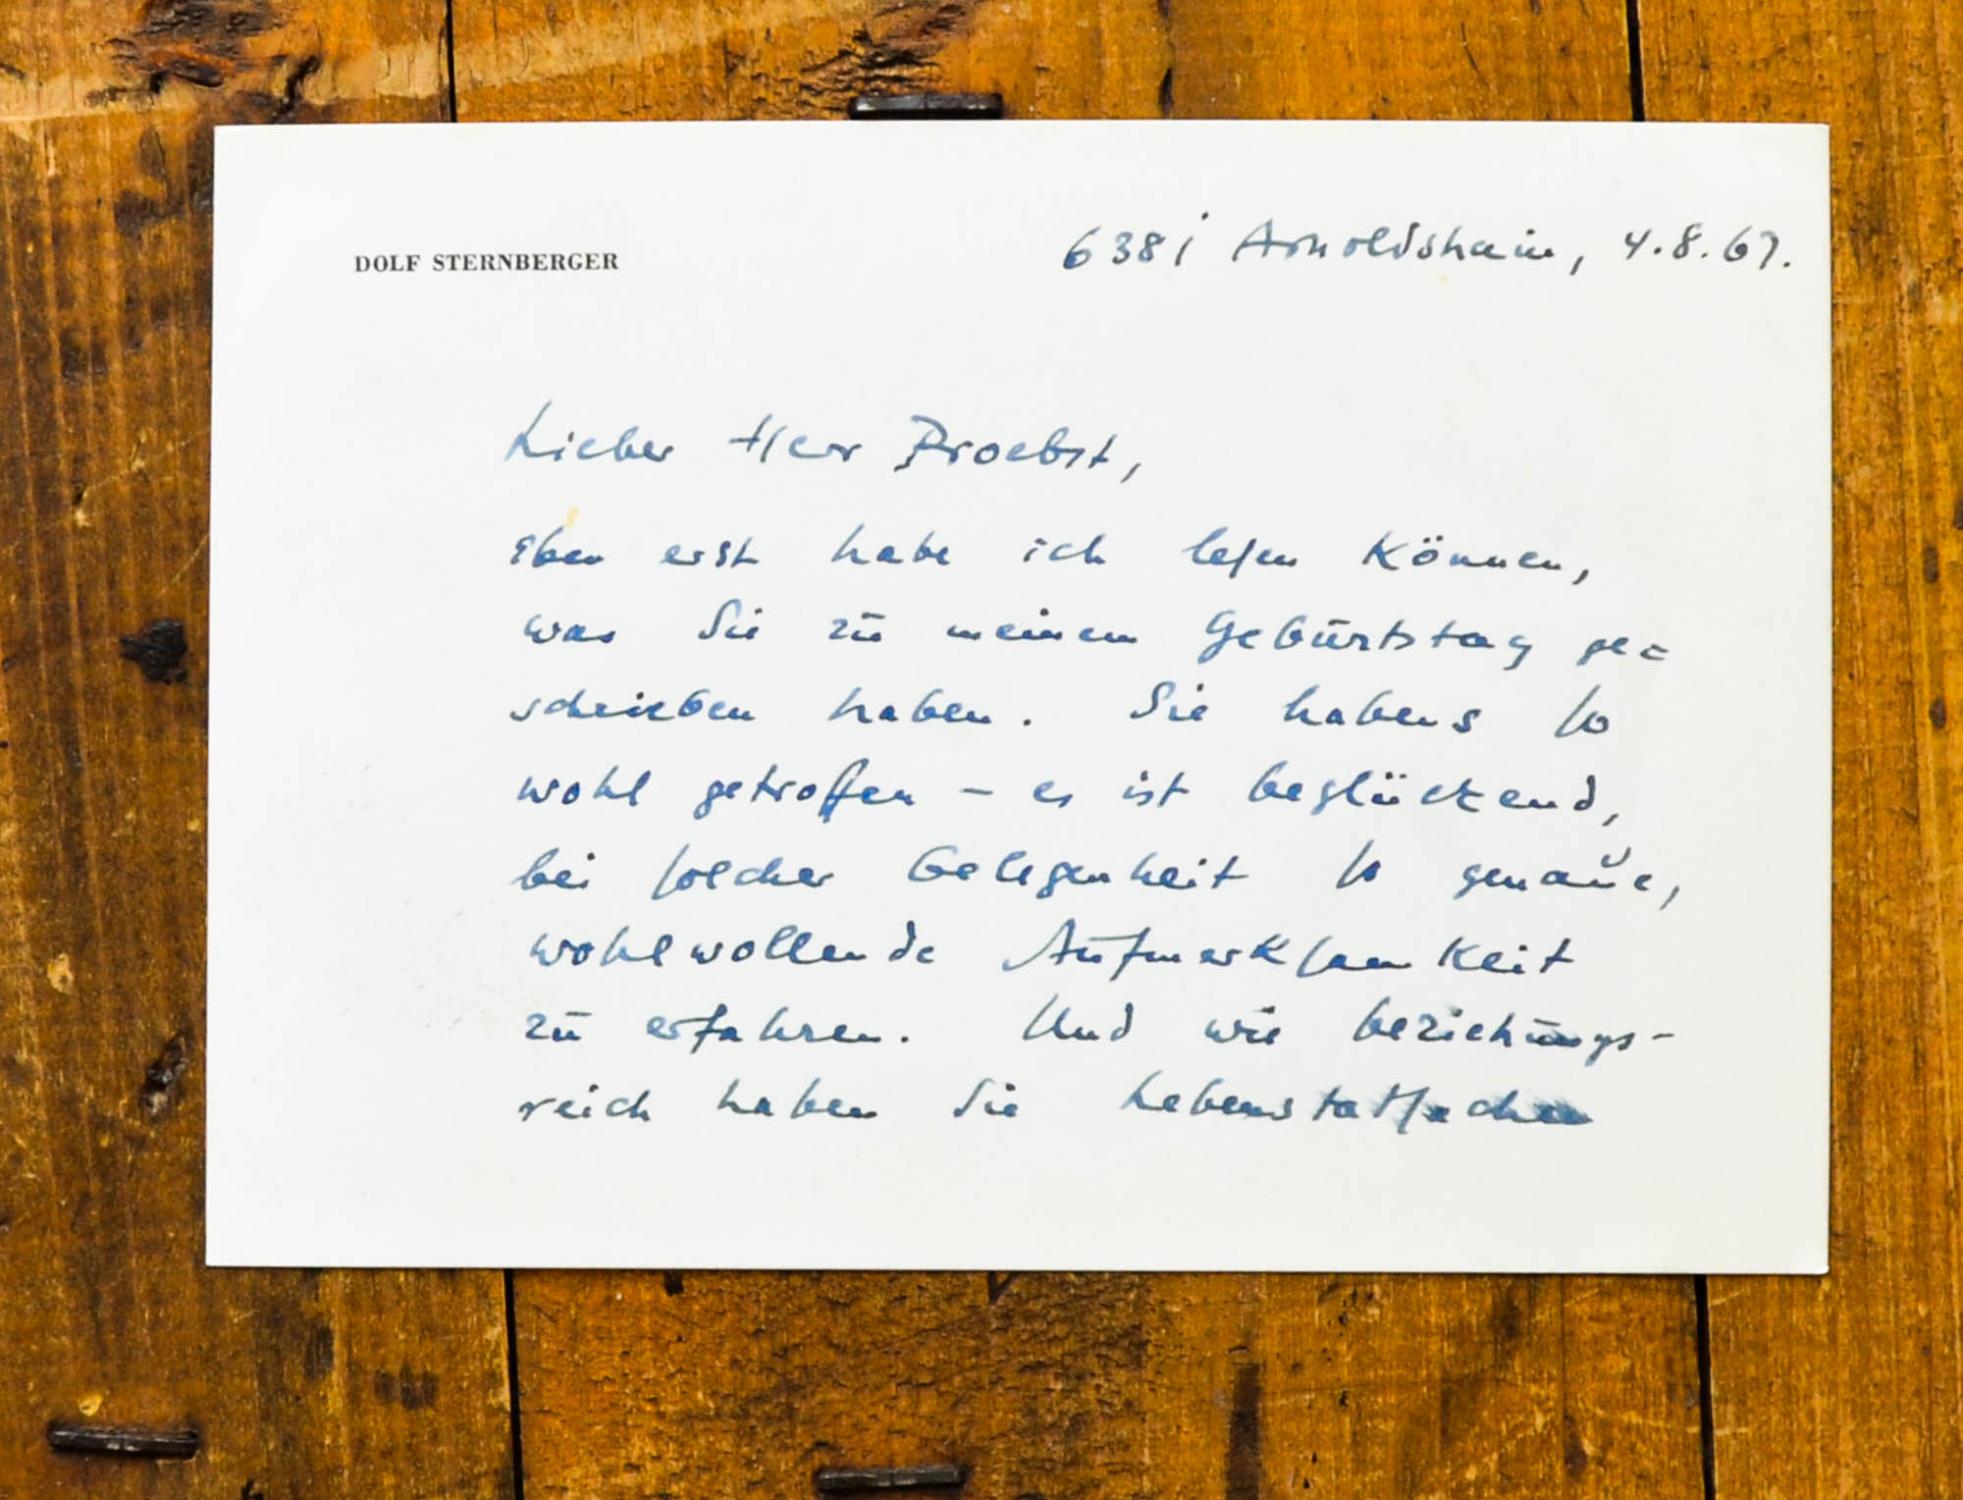 DOLF STERNBERGER
6381 Arnoldshain, 4.8.67.
Lieber Herr Proebst,
eben erst habe ich lesen können,
was Sie zu meinem Geburtstag ge=
schrieben haben. Sie habens so
wohl getroffen – es ist beglückend,
bei solcher Gelegenheit so genaue,
wohlwollende Aufmerksamkeit
zu erfahren. Und wie beziehungs-
reich haben Sie Lebenstatsachen